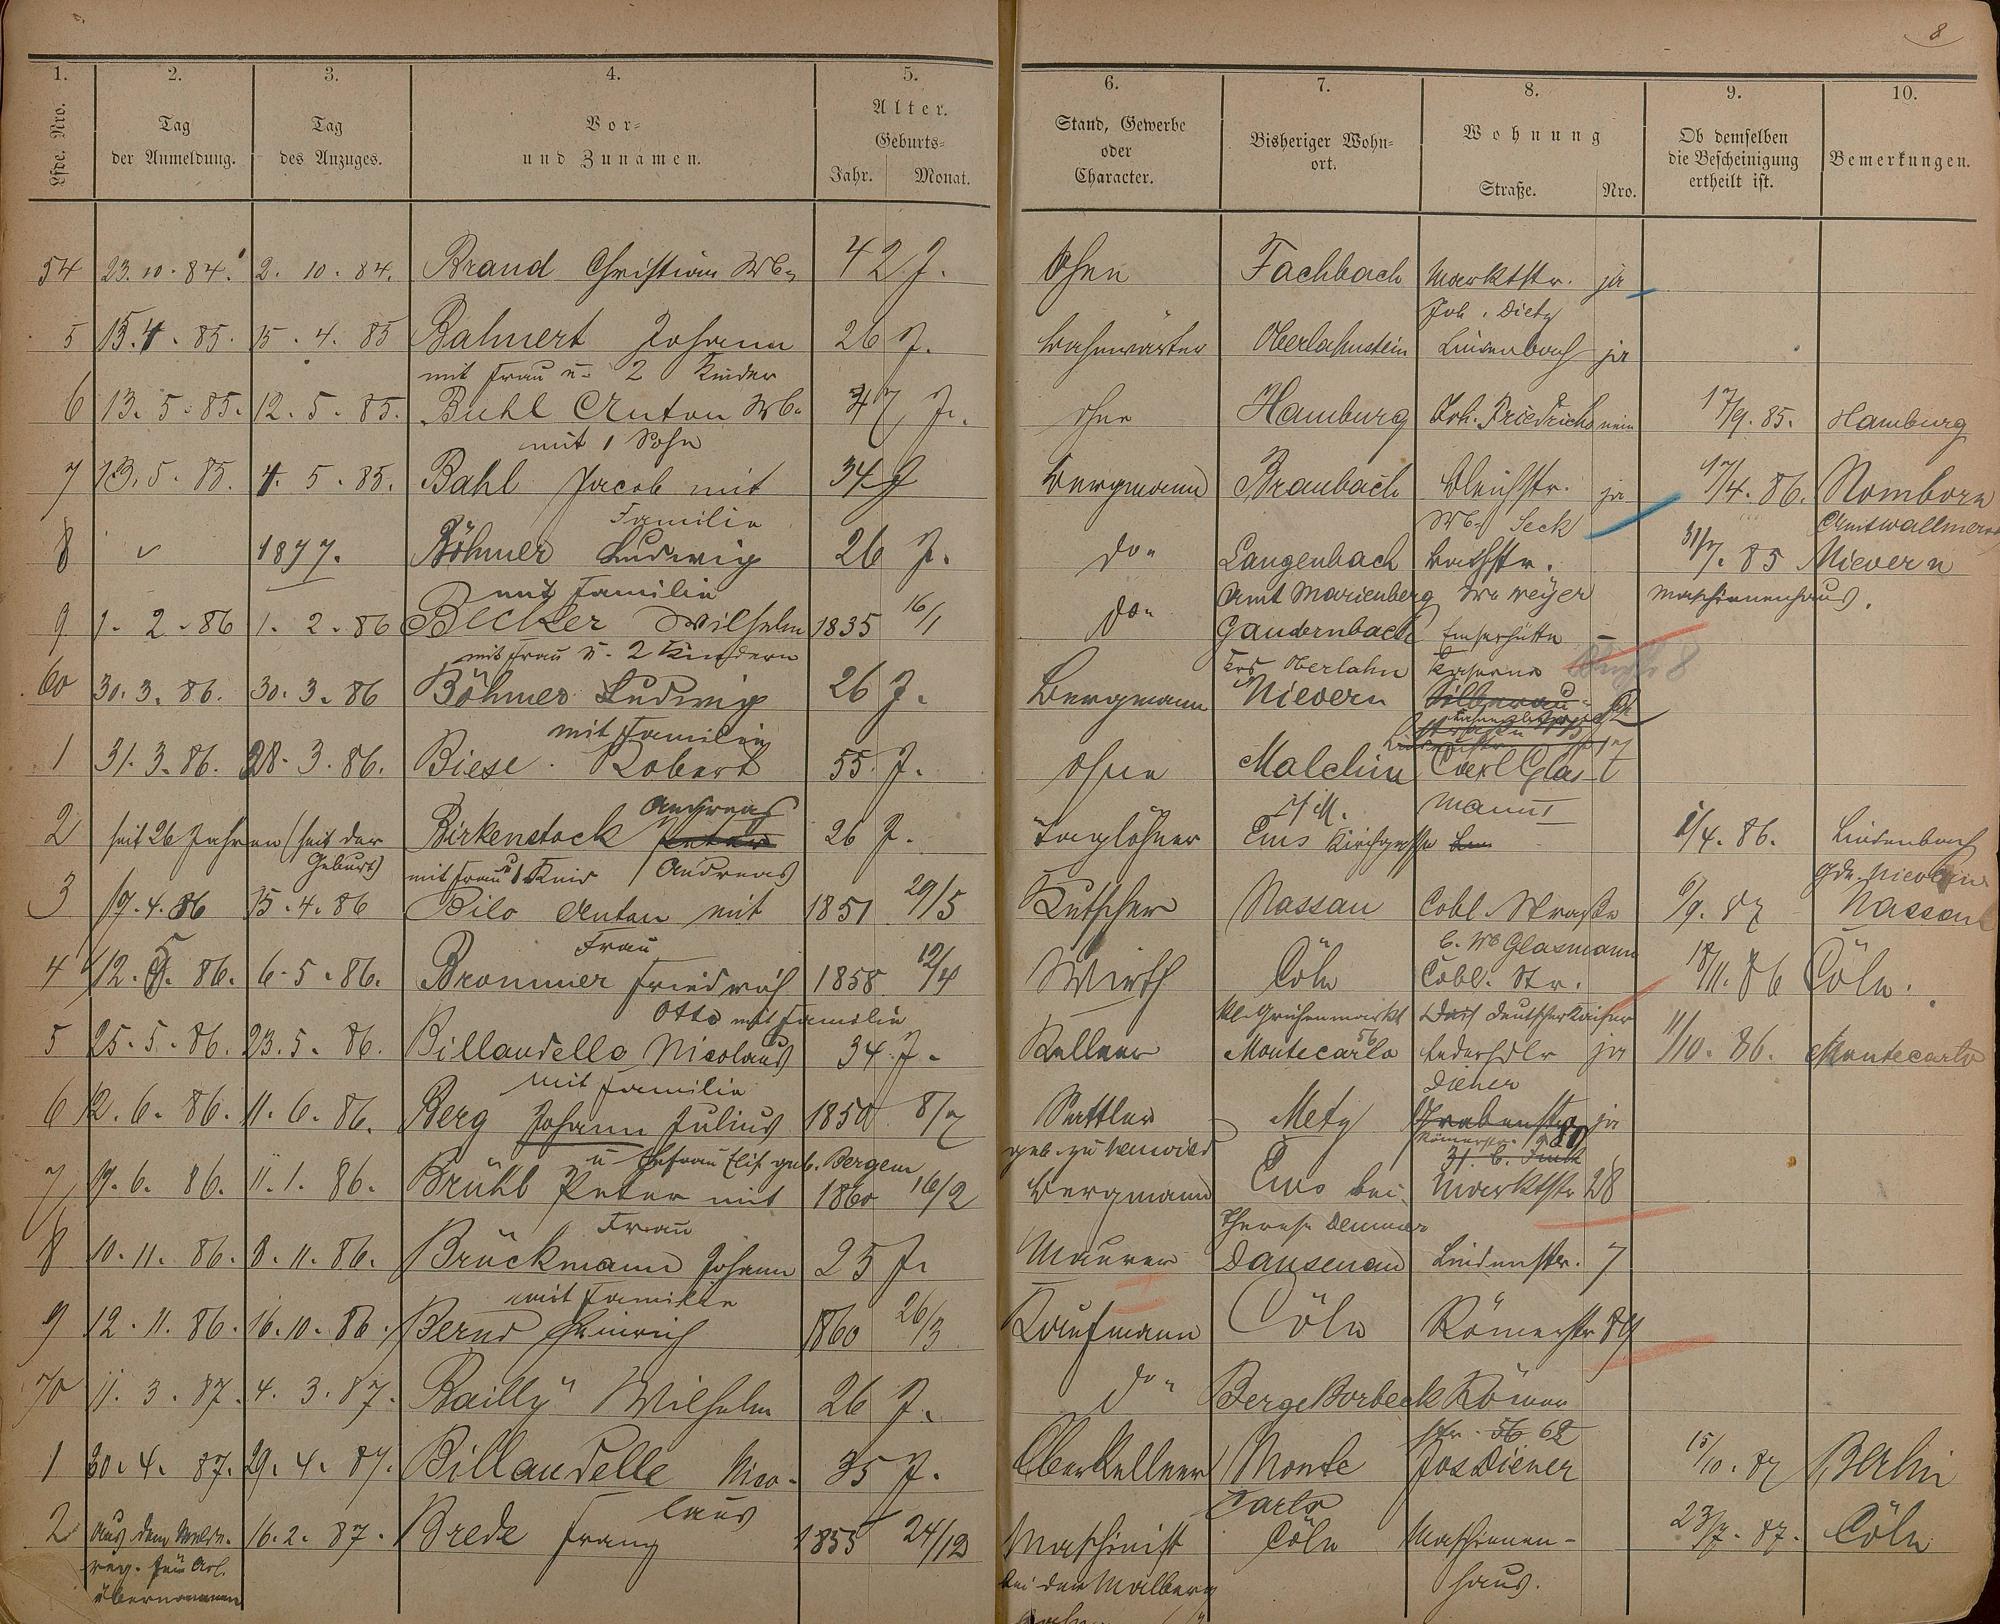 8
1. 2. 3. 4. 5. 6. 7. 8. 9. 10.
Lfde. Nro.
Tag der Anmeldung.
Tag des Anzuges.
Vor- und Zunamen.
Alter.
Geburts-
Jahr. Monat.
Stand, Gewerbe oder Character.
Bisheriger Wohn-ort.
Wohnung
Straße. Nro.
Ob demselben die Bescheinigung ertheilt ist.
Bemerkungen.
54 23.10.84. 2. 10. 84. Brand Christian Wb. 42 J. Ohne Fachbach Marktstr. ja
Joh. Dietz
5 15.4.85. 15. 4. 85 Bahnert Johann 26 J. Bahnwärter Oberlahnstein Lindenbach ja
mit Frau u. 2 Kinder
6 13. 5. 85. 12. 5. 85. Buhl Anton Wb. 47 J. ohne Hamburg Joh. Friedrichs nein 17/9. 85. Hamburg
mit 1 Sohn
7 13. 5. 85. 4. 5. 85. Bahl Jacob mit 34 J Bergmann Braubach Bleichstr. ja 17/4. 86. Nomborn
Familie Wb. Seck Amt Wallmerod
8 1877. Böhmer Ludwig 26 J. do Langenbach Bachstr. 31/7. 85 Nievern
mit Familie Amt Marienberg Ww Meyer Maschinenhaus.
9 1. 2. 86 1. 2. 86 Becker Wilhelm 1835 16/1 do Gaudernbach Emserhütte
mit Frau u. 2 Kindern Krs Oberlahn Kaserne
60 30. 3. 86. 30. 3. 86 Böhmer Ludwig 26 J. Bergmann Nievern Silberau
mit Familie
1 31. 3. 86. 28. 3. 86. Biese Robert 55. J. ohne Malchin Carl Glas
i/M. mann
2 seit 26 Jahren (seit der Geburt) Birkenstock Andreas 26 J. Taglöhner Ems Kirchgasse 1/4. 86. Lindenbach
mit Frau u 1 Kind Andreas Gde. Nievern
3 17.4.86 15.4.86 Bilo Anton mit 1851 29/5 Kutscher Nassau Cobl. Straße 6/9. 87 Nassau
Frau b. Wb Glasmann
4 12. 5. 86. 6. 5. 86. Brommer Friedrich 1858 12/4 Wirth Cöln Cobl. Str. 18/11. 86 Cöln.
Otto mit Familie kl. Griechenmarkt 56 Deutscher Kaiser
5 25. 5. 86. 23. 5. 86. Billaudelle Nicolaus 34. J. Kellner Montecarlo Lederhdlr ja 11/10. 86. Montecarlo
mit Familie Diener
6 12. 6. 86. 11. 6. 86. Berg Johann Julius 1850 8/7 Sattler Metz Grabenstr ja
u Ehefrau Elis. geb. Bergem geb. zu Neuwied Römerstr.
7 19. 6. 86. 11. 1. 86. Brühl Peter mit 1860 16/2 Bergmann Ems bei Marktstr 28
Frau Therese Demmer
8 10. 11. 86. 8. 11. 86. Brückmann Johann 25 J. Maurer Dausenau Lindenstr. 7
mit Familie
9 12. 11. 86. 16. 10. 86. Bernd Heinrich 1860 26/3 Kaufmann Cöln Römerstr 89
70 11. 3. 87. 4. 3. 87. Bailly Wilhelm 26 J. do Berge Borbeck Römer
str. 56 62
1 30. 4. 87. 29. 4. 87. Billaudelle Nico- 35 J. Oberkellner Monte Jos Diener 15/10. 87 Berlin
laus Carlo
2 Aus dem Melde- 16. 2. 87. Brede Franz 1855 24/12 Maschinist Cöln Maschinen- 23/7. 87. Cöln
reg. für Arb. bei der Malberg haus.
übernommen